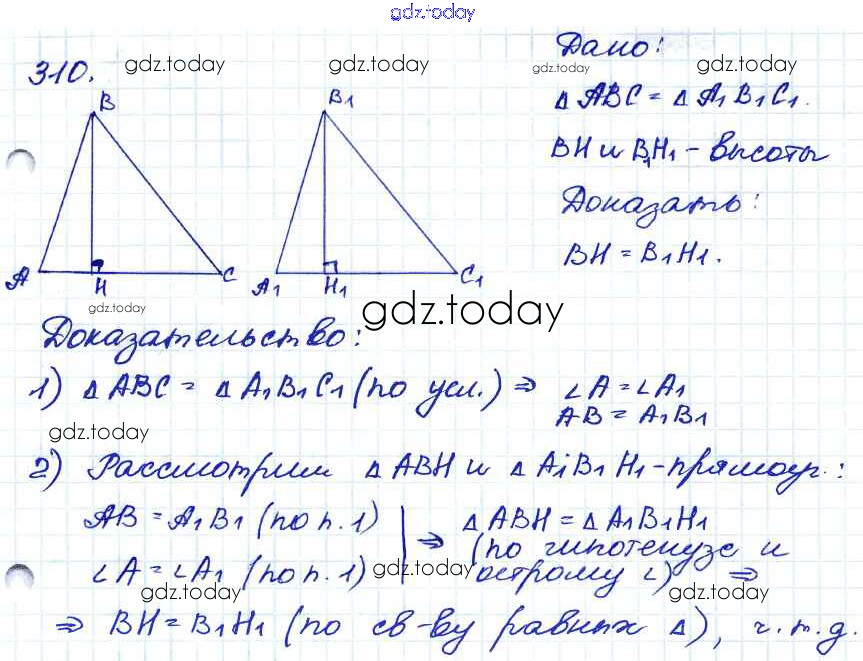 gdz.today
310.
gdz.today
gdz.today
gdz.today
gdz.today
Дано:
△ABC = △A₁B₁C₁.
BH и B₁H₁ - высоты
Доказать:
BH = B₁H₁.
B
A
H
C
B₁
A₁
H₁
C₁
gdz.today
gdz.today
Доказательство:
1) △ABC = △A₁B₁C₁ (по усл.) ⇒ ∠A = ∠A₁
AB = A₁B₁
gdz.today
2) Рассмотрим △ABH и △A₁B₁H₁ - прямоуг.:
AB = A₁B₁ (по п. 1)
∠A = ∠A₁ (по п. 1)
⇒ △ABH = △A₁B₁H₁
(по гипотенузе и
острому ∠) ⇒
gdz.today
gdz.today
gdz.today
gdz.today
⇒ BH = B₁H₁ (по св-ву равных △), ч.т.д.